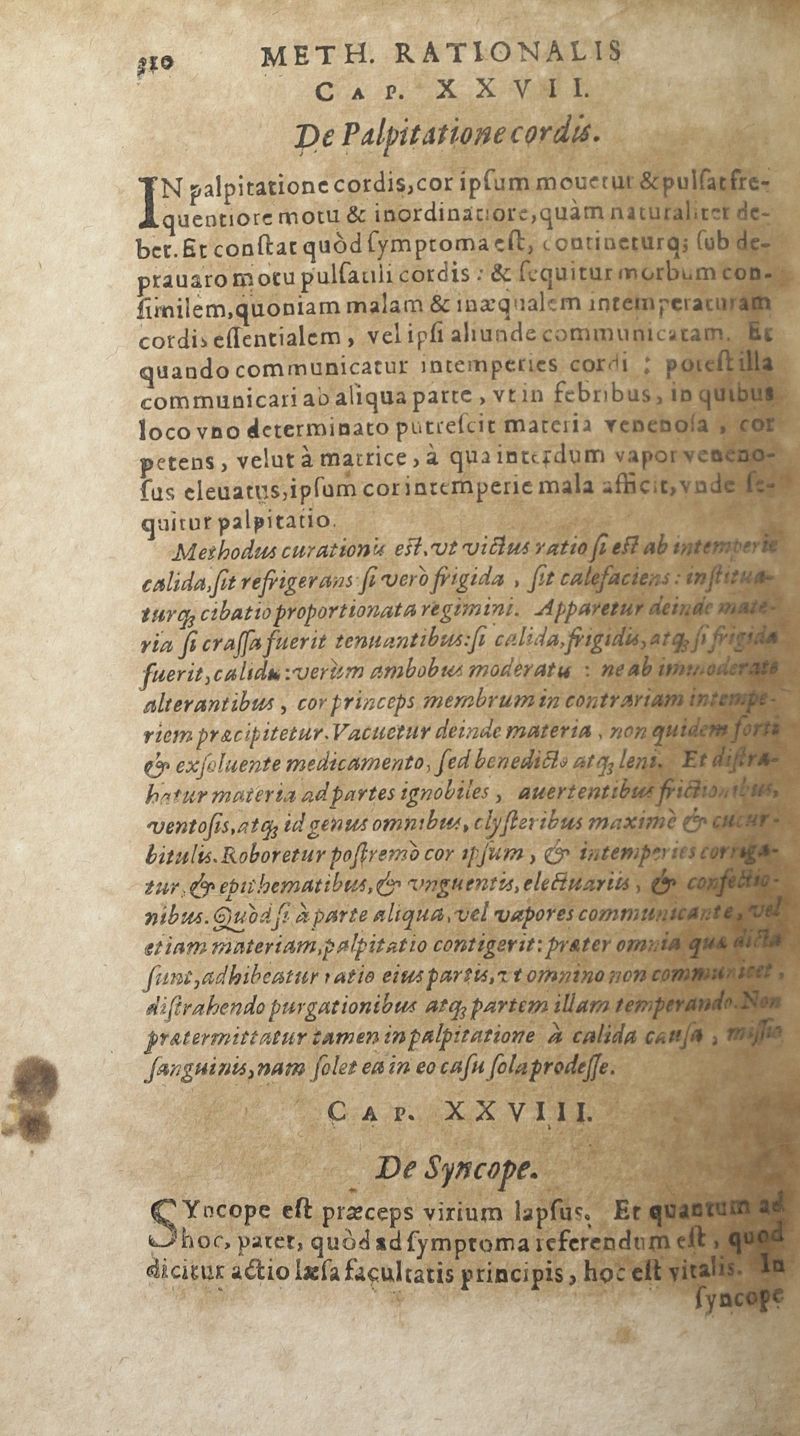 310 METH. RATIONALIS
CAP. XXVII.
De Palpitatione cordis.
IN palpitatione cordis, cor ipſum mouetur & pulſat fre-
quentiore motu & inordinatiore, quàm naturaliter de-
bet. Et conſtat quòd ſymptoma eſt, contineturq; ſub de-
prauato motu pulſatili cordis: & ſequitur morbum con-
ſimilem, quoniam malam & inæqualem intemperaturam
cordis eſſentialem, vel ipſi aliunde communicatam. Et
quando communicatur intemperies cordi; poteſt illa
communicari ab aliqua parte, vt in febribus, in quibus
loco vno determinato putreſcit materia venenoſa, cor
petens, velut à matrice, à qua interdum vapor veneno-
ſus eleuatus, ipſum cor intemperie mala afficit, vnde ſe-
quitur palpitatio.
Methodus curationis eſt, vt victus ratio ſi eſt ab intemperie
calida, ſit refrigerans ſi verò frigida, ſit calefaciens: inſtitua-
turq; cibatio proportionata regimini. Apparetur deinde mate-
ria ſi craſſa fuerit tenuantibus: ſi calida, frigidis, atq; ſi frigida
fuerit, calidis: verùm ambobus moderatis: ne ab immoderate
alterantibus, cor princeps membrum in contrariam intempe-
riem præcipitetur. Vacuetur deinde materia, non quidem forti
& exſoluente medicamento, ſed benedicto atq; leni. Et diſtra-
hatur materia ad partes ignobiles, auertentibus frictionibus,
ventoſis, atq; id genus omnibus, clyſteribus maximè & cucur-
bitulis. Roboretur poſtremò cor ipſum, & intemperies corriga-
tur, & epithematibus, & vnguentis, electuariis, & confectio-
nibus. Quòd ſi à parte aliqua, vel vapores communicante, vel
etiam materiam, palpitatio contigerit: præter omnia quæ dicta
ſunt, adhibeatur ratio eius partis, vt omnino non communicet,
diſtrahendo purgationibus atq; partem illam temperando. Non
prætermittatur tamen in palpitatione à calida cauſa, miſſio
ſanguinis, nam ſolet ea in eo caſu ſola prodeſſe.
CAP. XXVIII.
De Syncope.
SYncope eſt præceps virium lapſus. Et quantum ad
hoc, patet, quòd ad ſymptoma referendum eſt, quod
dicitur actio læſa facultatis principis, hoc eſt vitalis. In
ſyncope